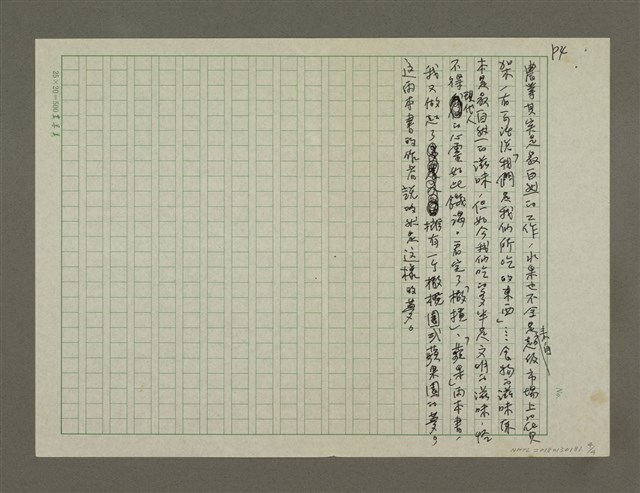 P4
農業其實是最自然的工作，水果也不全是來自超級市場上的貨
架，有句話說「我們是我們所吃的東西」…食物的滋味原
本是最自然的滋味，但如今我們吃的多半是文明的滋味，怪
不得現代人的心靈如此饑渴。看完了「橄欖」、「蘋果」兩本書，
我又做起了擁有一个橄欖園或蘋果園的夢。
這兩本書的作者說的她是這樣的夢。
25×20=500